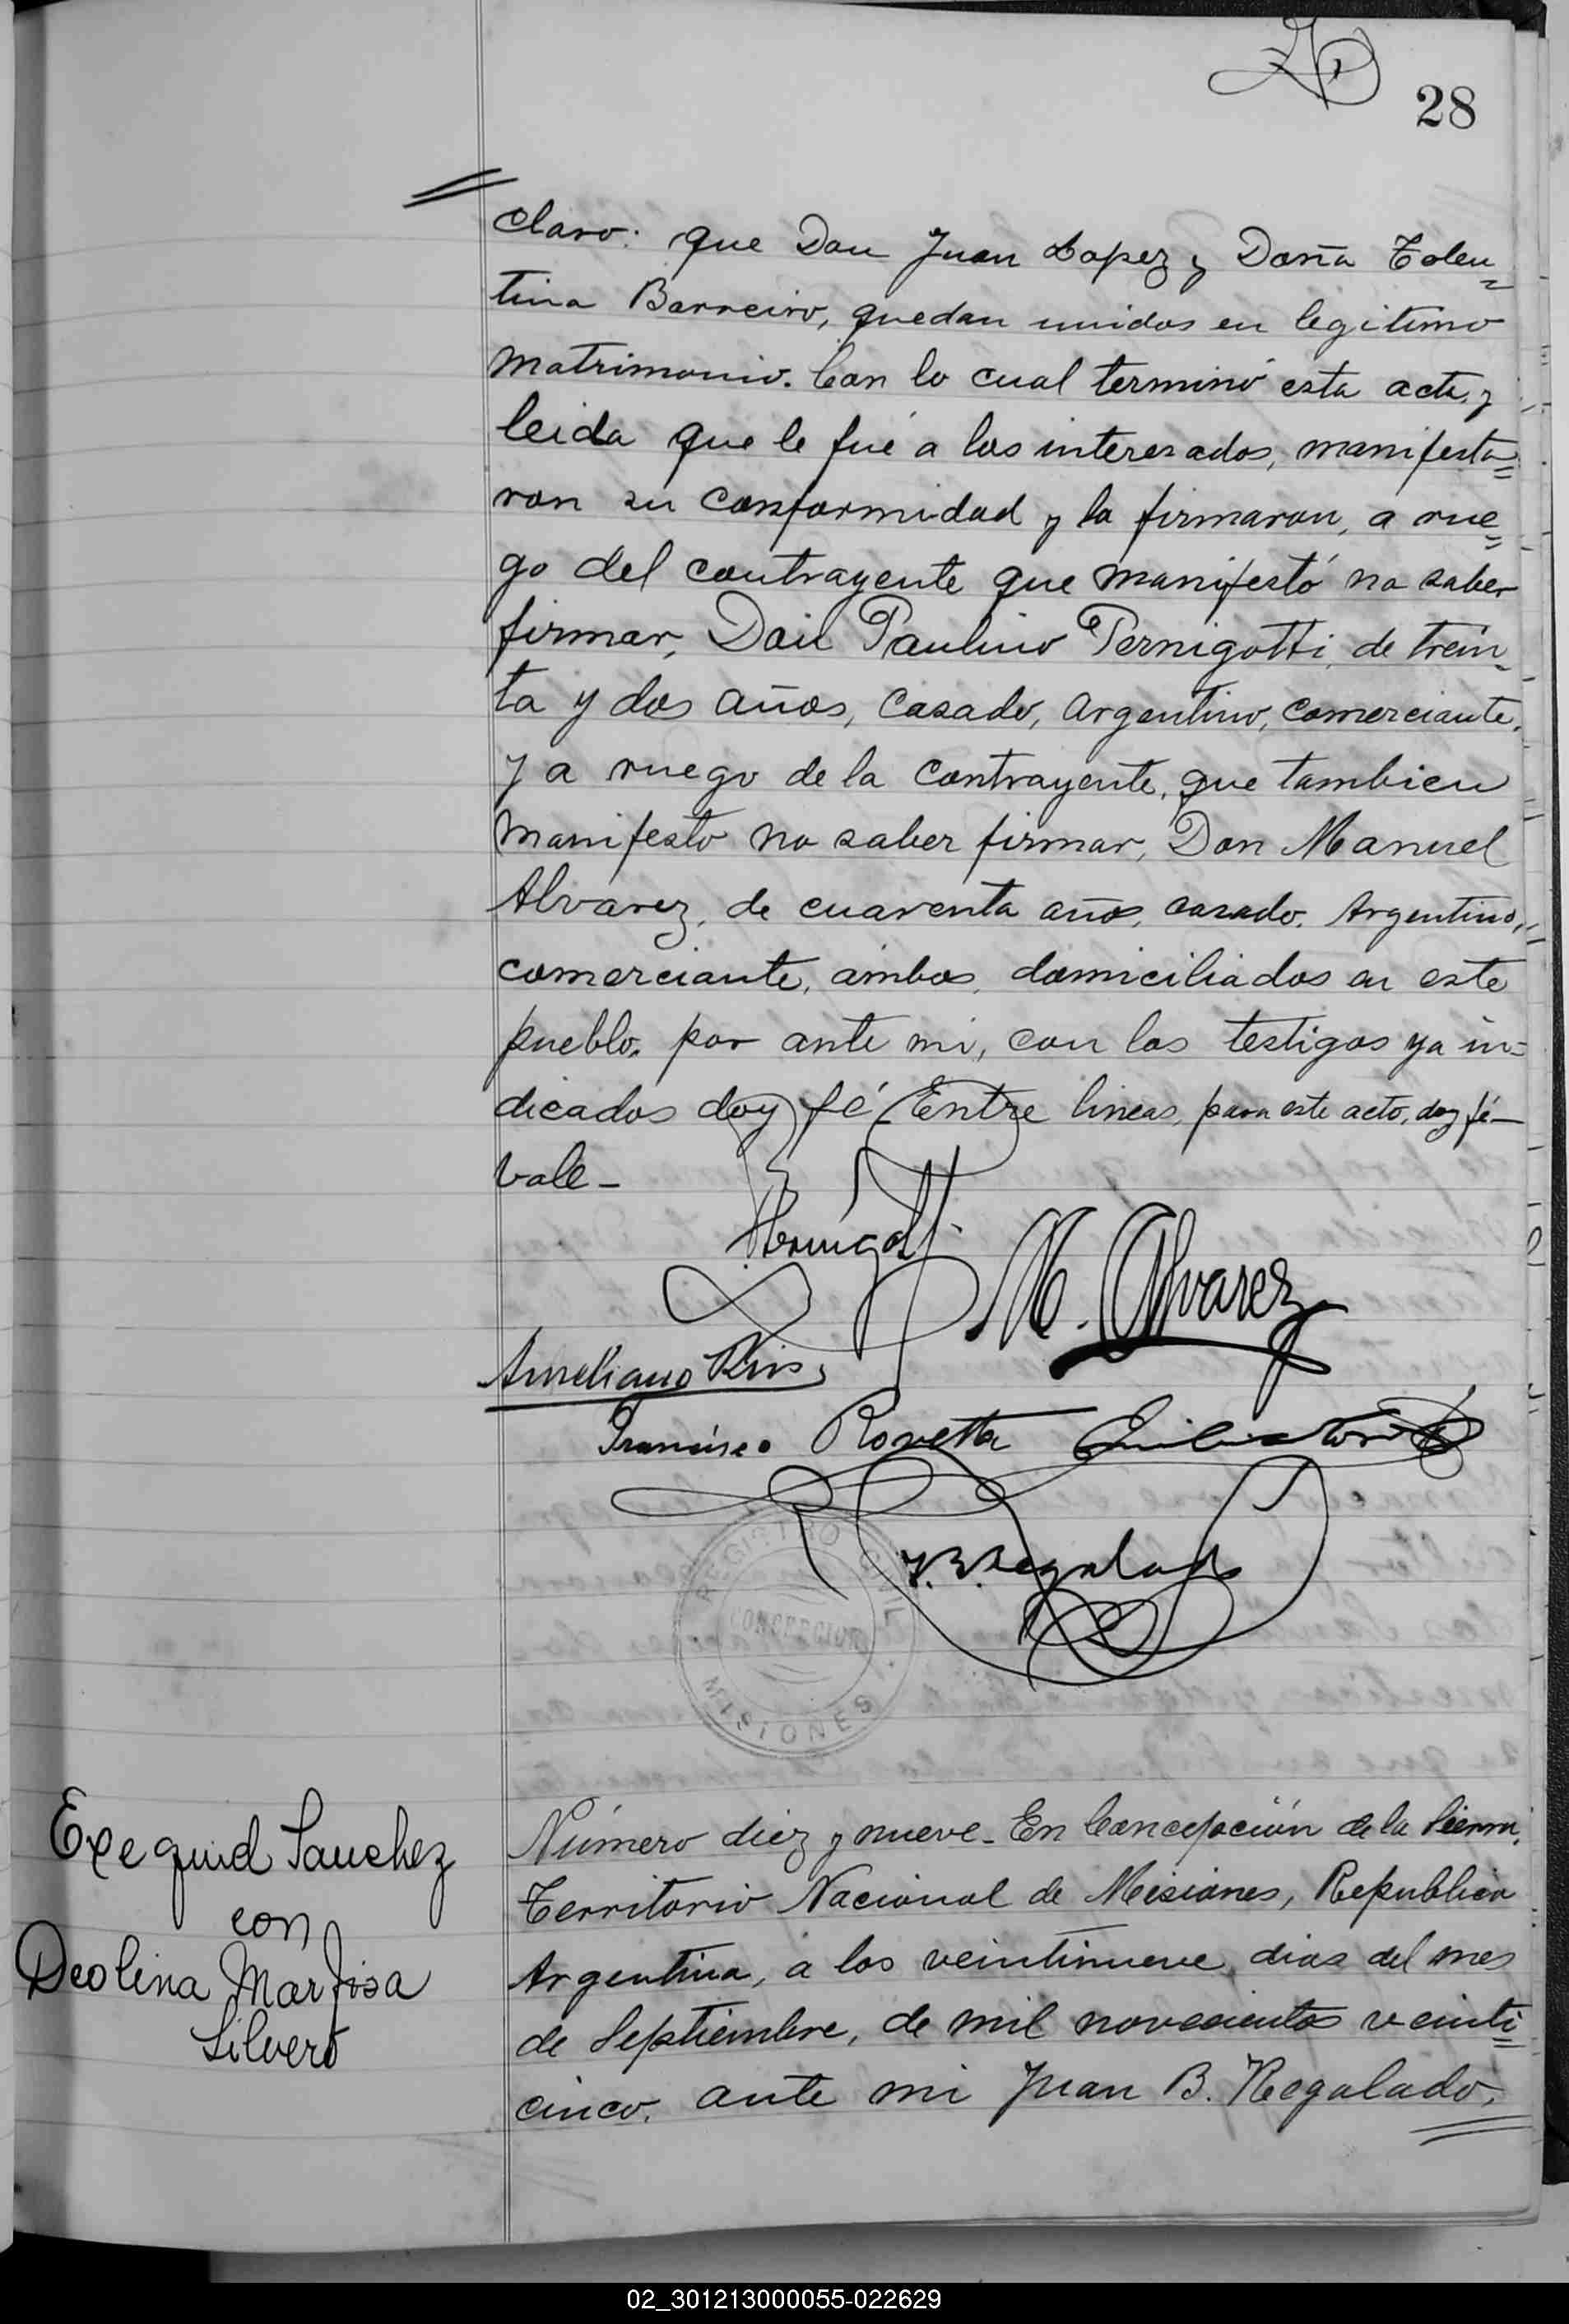 28
claro: que Don Juan Lopez y Doña Tolen=
tina Barreiro, quedan unidos en legitimo
matrimonio. Con lo cual terminó esta acta, y
leida que le fué a los interesados, manifesta=
ron su conformidad y la firmaron, a rue=
go del contrayente que manifestó no saber
firmar, Don Paulino Pernigotti, de trein=
ta y dos años, casado, argentino, comerciante,
y a ruego de la contrayente, que tambien
manifesto no saber firmar, Don Manuel
Alvarez, de cuarenta años, casado, Argentino,
comerciante, ambos, domiciliados en este
pueblo, por ante mi, con los testigos ya in=
dicados doy fé. Entre lineas, para este acto, doy fé—
vale—
Pernigotti
M. Alvarez
Francisco Rovetta
J. B. Regalado
REGISTRO CIVIL
CONCEPCION
MISIONES
Exequiel Sanchez
con
Deolina Marfisa
Silvero
Número diez y nueve_ En Concepción de la Sierra,
Territorio Nacional de Misiones, Republica
Argentina, a los veintinueve dias del mes
de Septiembre, de mil novecientos veinti=
cinco, ante mi Juan B. Regalado,
02_301213000055-022629